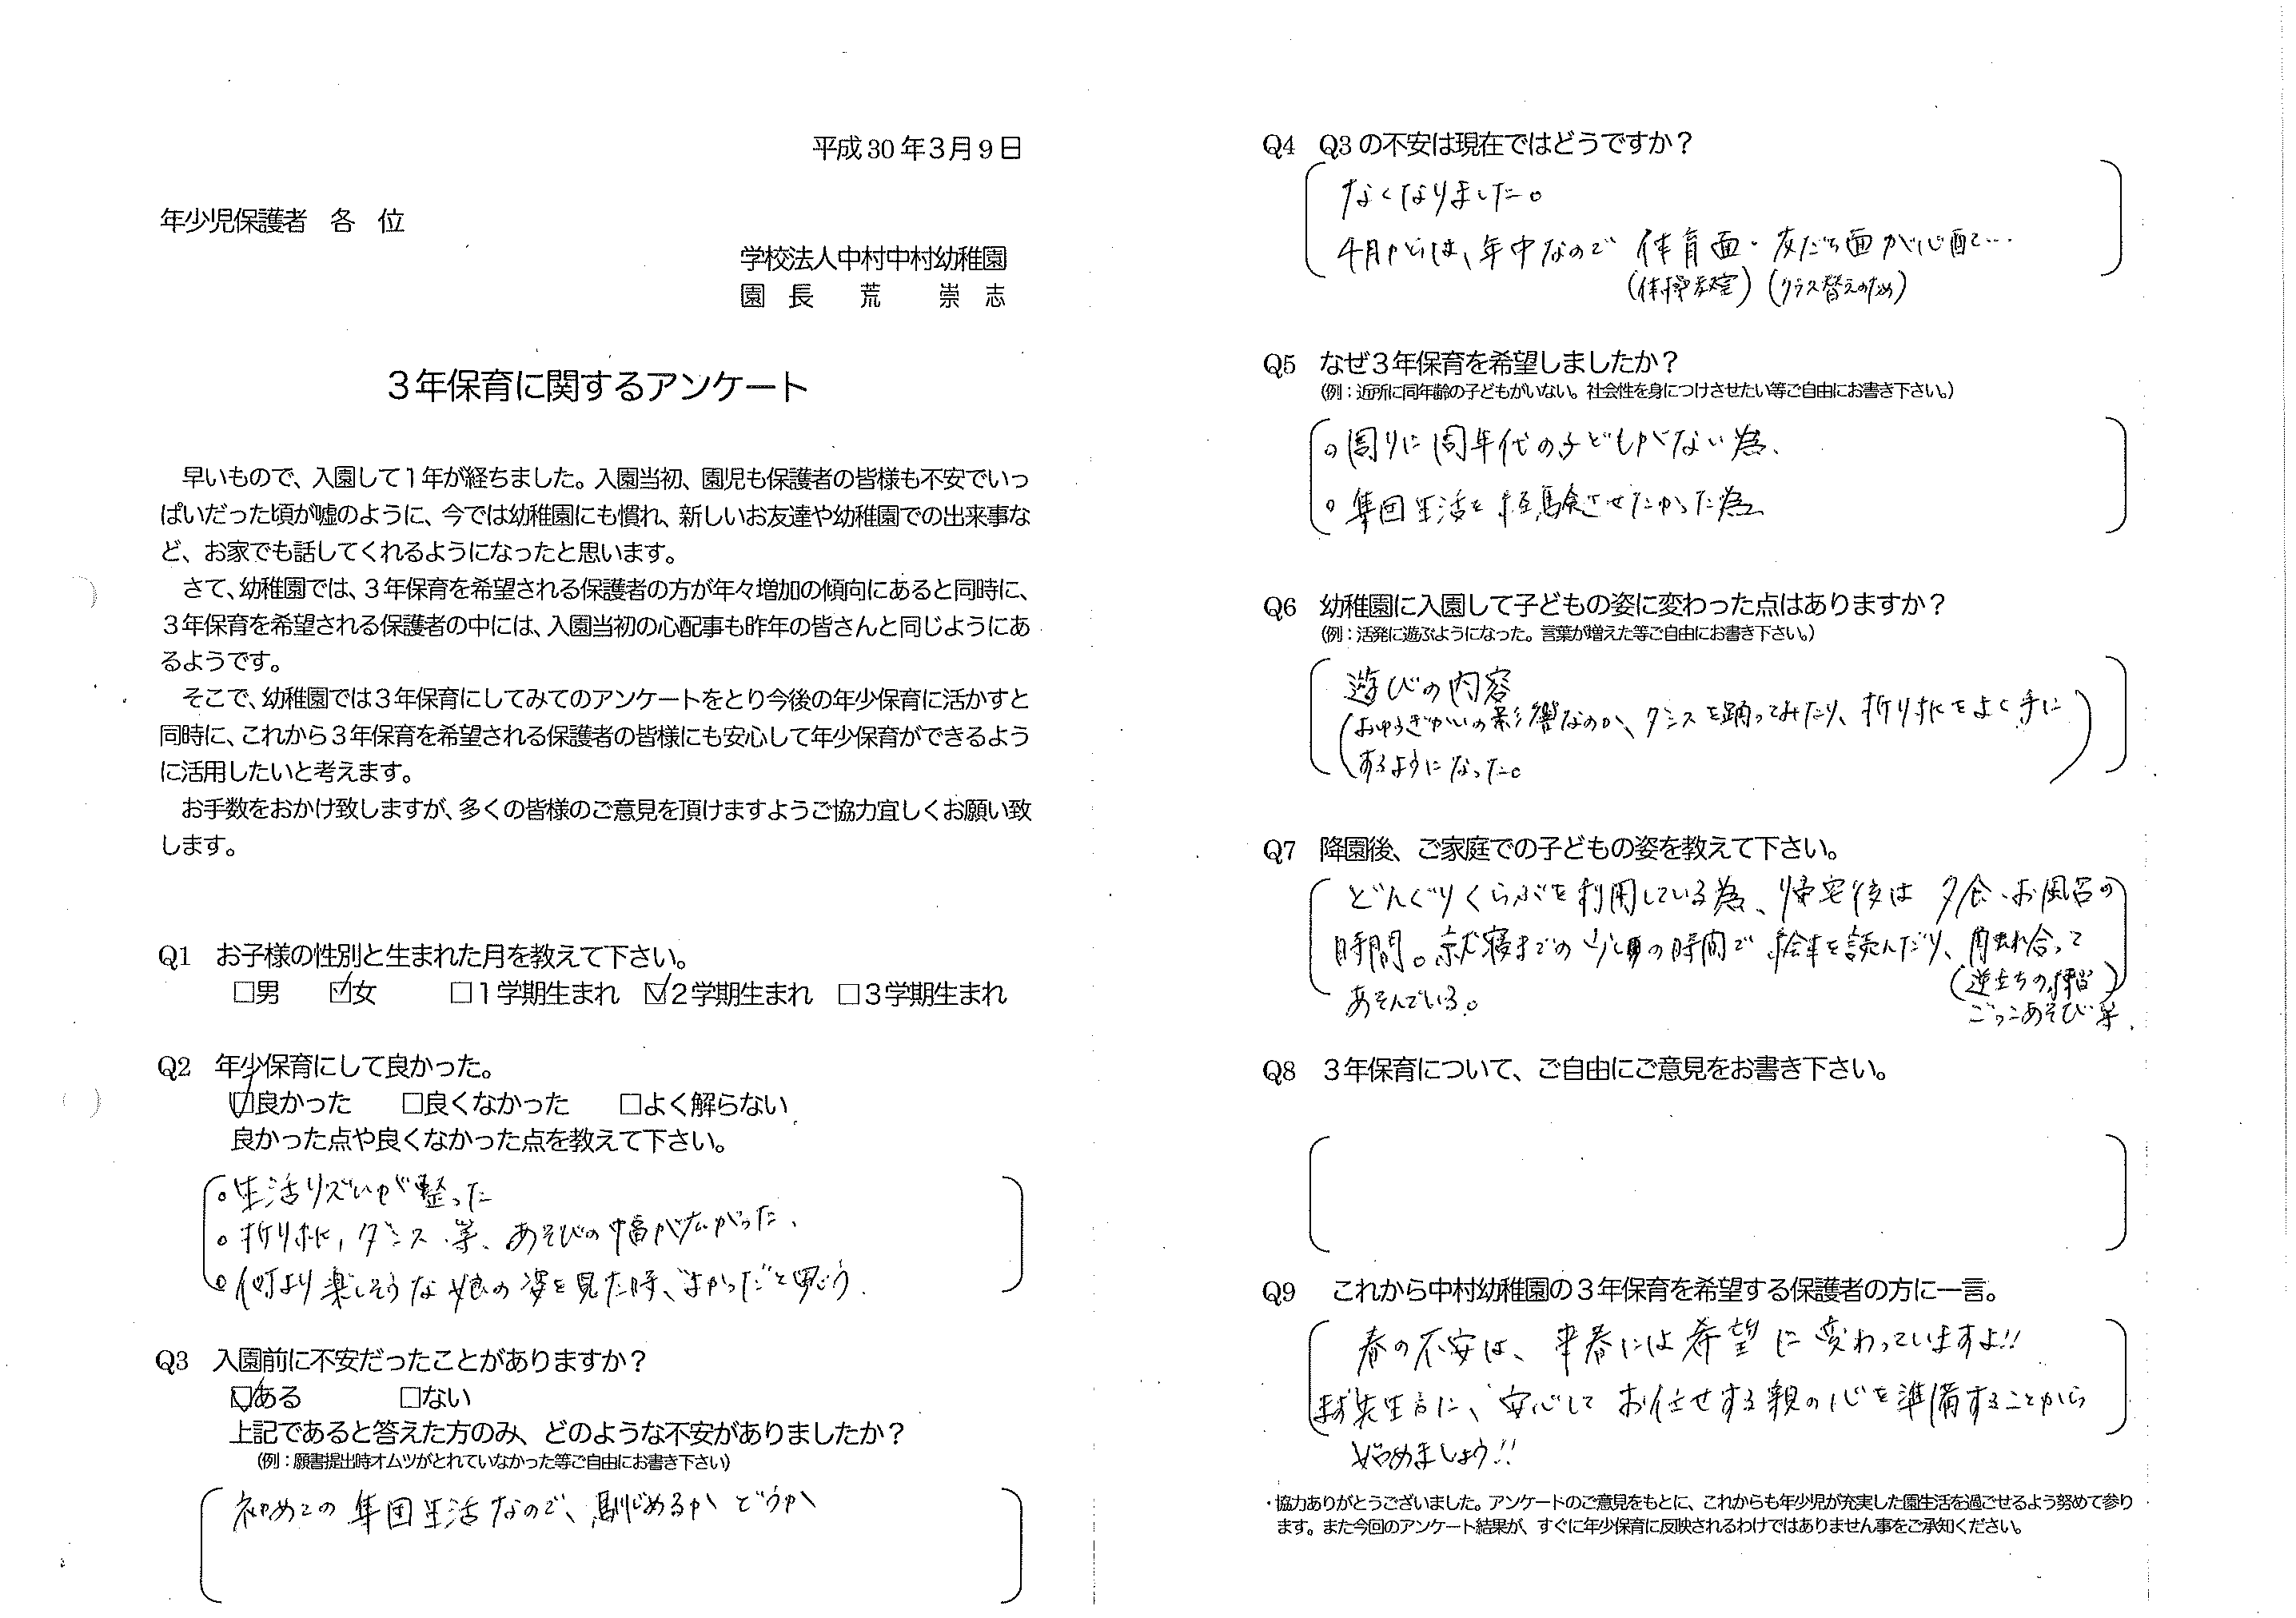 平成30年3月9日
年少児保護者　各　位
学校法人中村中村幼稚園
園　長　荒　崇　志
３年保育に関するアンケート
早いもので、入園して１年が経ちました。入園当初、園児も保護者の皆様も不安でいっ
ぱいだった頃が嘘のように、今では幼稚園にも慣れ、新しいお友達や幼稚園での出来事な
ど、お家でも話してくれるようになったと思います。
さて、幼稚園では、３年保育を希望される保護者の方が年々増加の傾向にあると同時に、
３年保育を希望される保護者の中には、入園当初の心配事も昨年の皆さんと同じようにあ
るようです。
そこで、幼稚園では３年保育にしてみてのアンケートをとり今後の年少保育に活かすと
同時に、これから３年保育を希望される保護者の皆様にも安心して年少保育ができるよう
に活用したいと考えます。
お手数をおかけ致しますが、多くの皆様のご意見を頂けますようご協力宜しくお願い致
します。
Q1　お子様の性別と生まれた月を教えて下さい。
□男　☑女　□１学期生まれ　☑２学期生まれ　□３学期生まれ
Q2　年少保育にして良かった。
☑良かった　□良くなかった　□よく解らない
良かった点や良くなかった点を教えて下さい。
○生活リズムが整った
○折り紙，ダンス等、あそびの幅が広がった、
○何より楽しそうな娘の姿を見た時、"よかった"と思う．
Q3　入園前に不安だったことがありますか？
☑ある　□ない
上記であると答えた方のみ、どのような不安がありましたか？
（例：願書提出時オムツがとれていなかった等ご自由にお書き下さい）
初めての集団生活なので、馴じめるか どうか
Q4　Q3の不安は現在ではどうですか？
なくなりました。
4月からは、年中なので 体育面・友だち面が心配で…
（体操教室）（クラス替えのため）
Q5　なぜ３年保育を希望しましたか？
（例：近所に同年齢の子どもがいない。社会性を身につけさせたい等ご自由にお書き下さい。）
○周りに同年代の子どもがいない為、
○集団生活を経験させたかった為
Q6　幼稚園に入園して子どもの姿に変わった点はありますか？
（例：活発に遊ぶようになった。言葉が増えた等ご自由にお書き下さい。）
遊びの内容
（おゆうぎかいの影響なのか、ダンスを踊ってみたり、折り紙をよく手に
するようになった。）
Q7　降園後、ご家庭での子どもの姿を教えて下さい。
どんぐりくらぶを利用している為、帰宅後は 夕食・お風呂の
時間。就寝までの少しの時間で 絵本を読んだり、合って
（逆立ちの練習）
あそんでいる。
ごっこあそび等．
Q8　３年保育について、ご自由にご意見をお書き下さい。
Q9　これから中村幼稚園の３年保育を希望する保護者の方に一言。
春の不安は、半春には希望に変わっていますよ!!
まず先生方に、安心してお任せする親の心を準備することから
始めましょう!!
・協力ありがとうございました。アンケートのご意見をもとに、これからも年少児が充実した園生活を過ごせるよう努めて参り
ます。また今回のアンケート結果が、すぐに年少保育に反映されるわけではありません事をご承知ください。